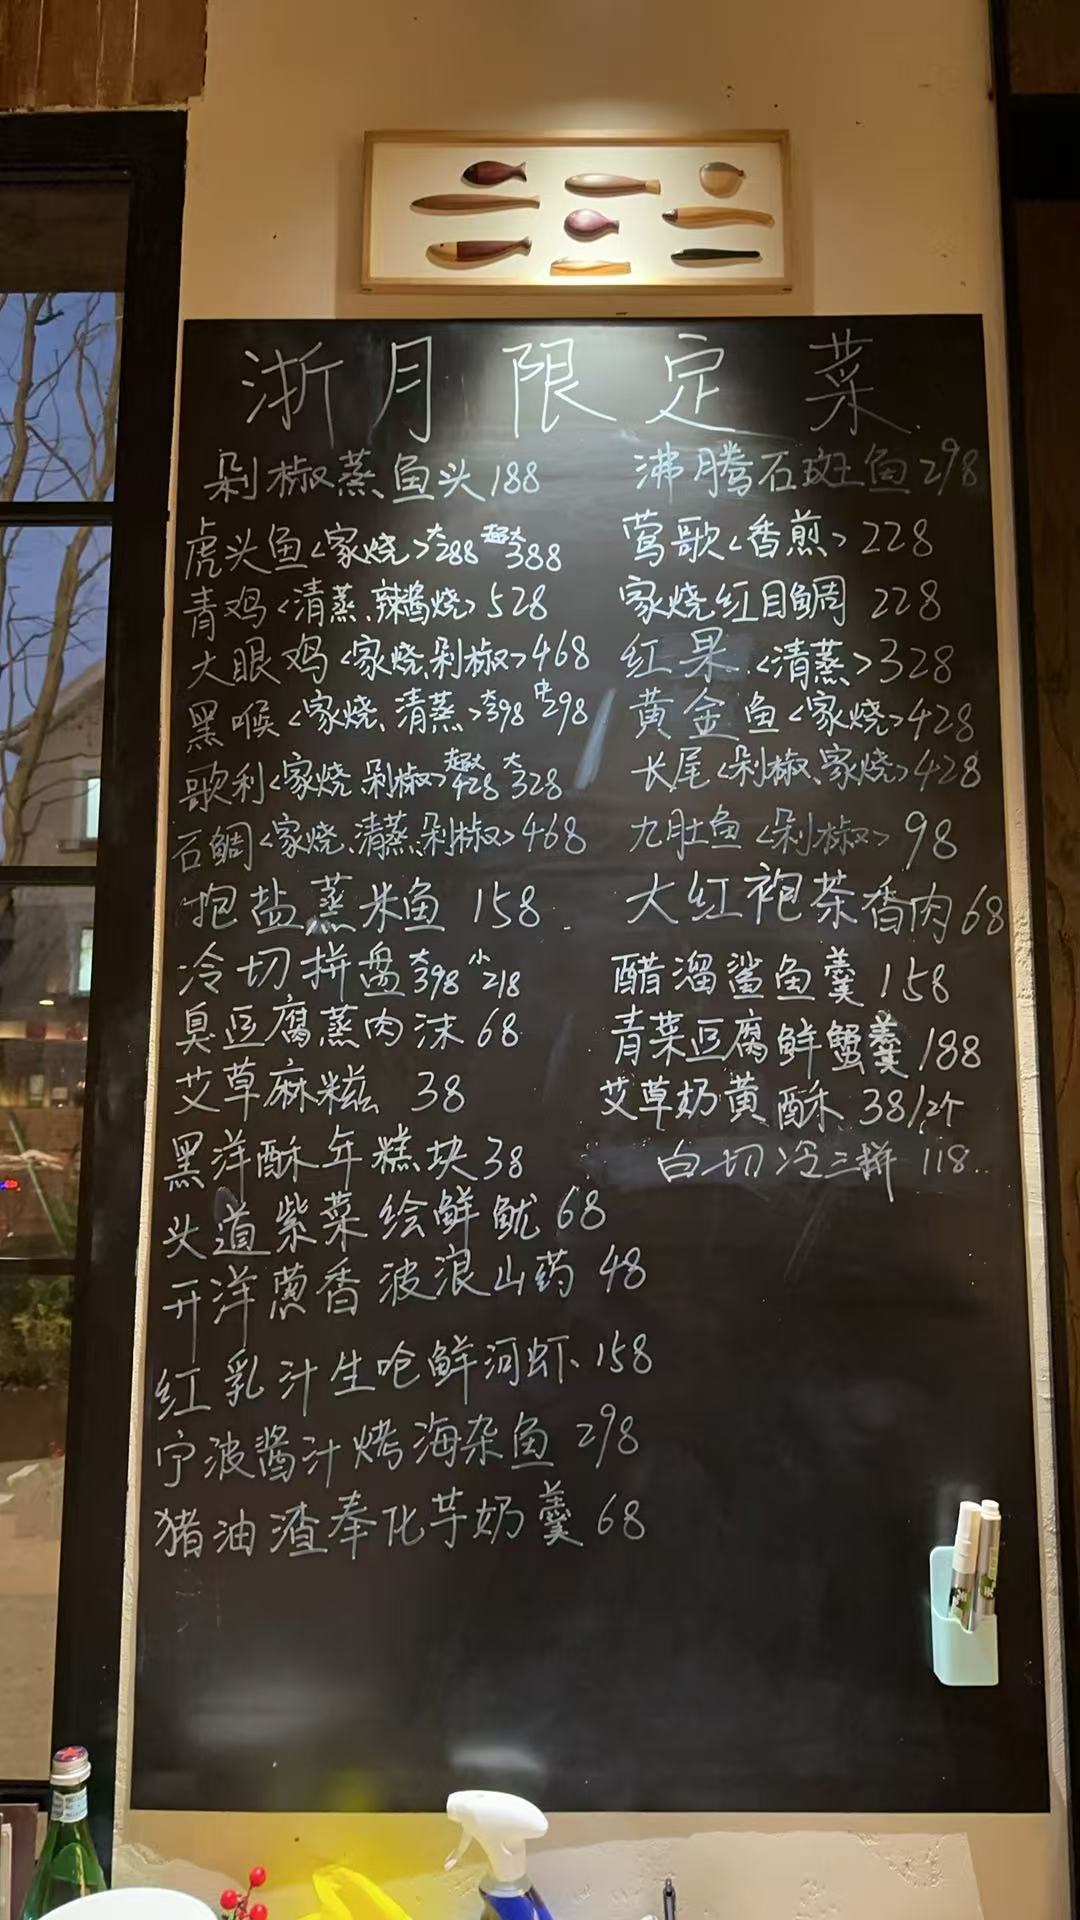 浙月限定菜
剁椒蒸鱼头188
虎头鱼<家烧>大288 超大388
青鸡<清蒸、辣酱烧>528
大眼鸡<家烧.剁椒>468
黑喉<家烧、清蒸>大398 中298
歌利<家烧、剁椒>超大428 大328
石鲷<家烧、清蒸、剁椒>468
抱盐蒸米鱼 158
冷切拼盘大398 小218
臭豆腐蒸肉沫 68
艾草麻糍 38
黑洋酥年糕块38
头道紫菜绘鲜鱿 68
开洋葱香波浪山药 48
红乳汁生呛鲜河虾 158
宁波酱汁烤海杂鱼 298
猪油渣奉化芋奶羹 68
沸腾石斑鱼298
莺歌<香煎>228
家烧红目鲷 228
红果 <清蒸>328
黄金鱼<家烧>428
长尾<剁椒、家烧>428
九肚鱼<剁椒>98
大红袍茶香肉68
醋溜鲨鱼羹 158
青菜豆腐鲜蟹羹 188
艾草奶黄酥 38/2个
白切冷三拼 118